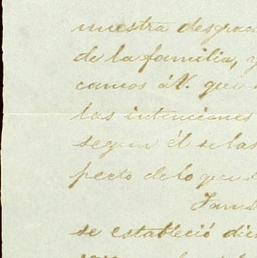 nuestra desgra
de la familia, y
camos á V. que
las intenciones
segun él se las
pecto de lo que
se estableció di